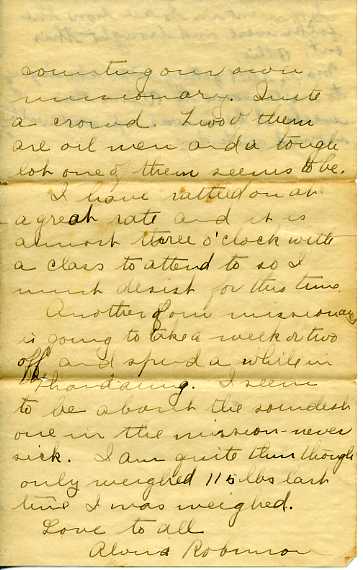 something our own
missionary. Quite
a crowd. Two of them
are oil men and a tough
lot one of them seems to be.
I have rattled on at
a great rate and it is
almost three o'clock with
a class to attend to so I
must desist for this time
Another of our missionaries
is going to take a week or two
off and spend a while in
I seem
to be about the soundest
one in the mission - never
sick. I am quite thin though
only weighed 115 lbs last
time I was weighed.
Love to all
Alvina Robinson